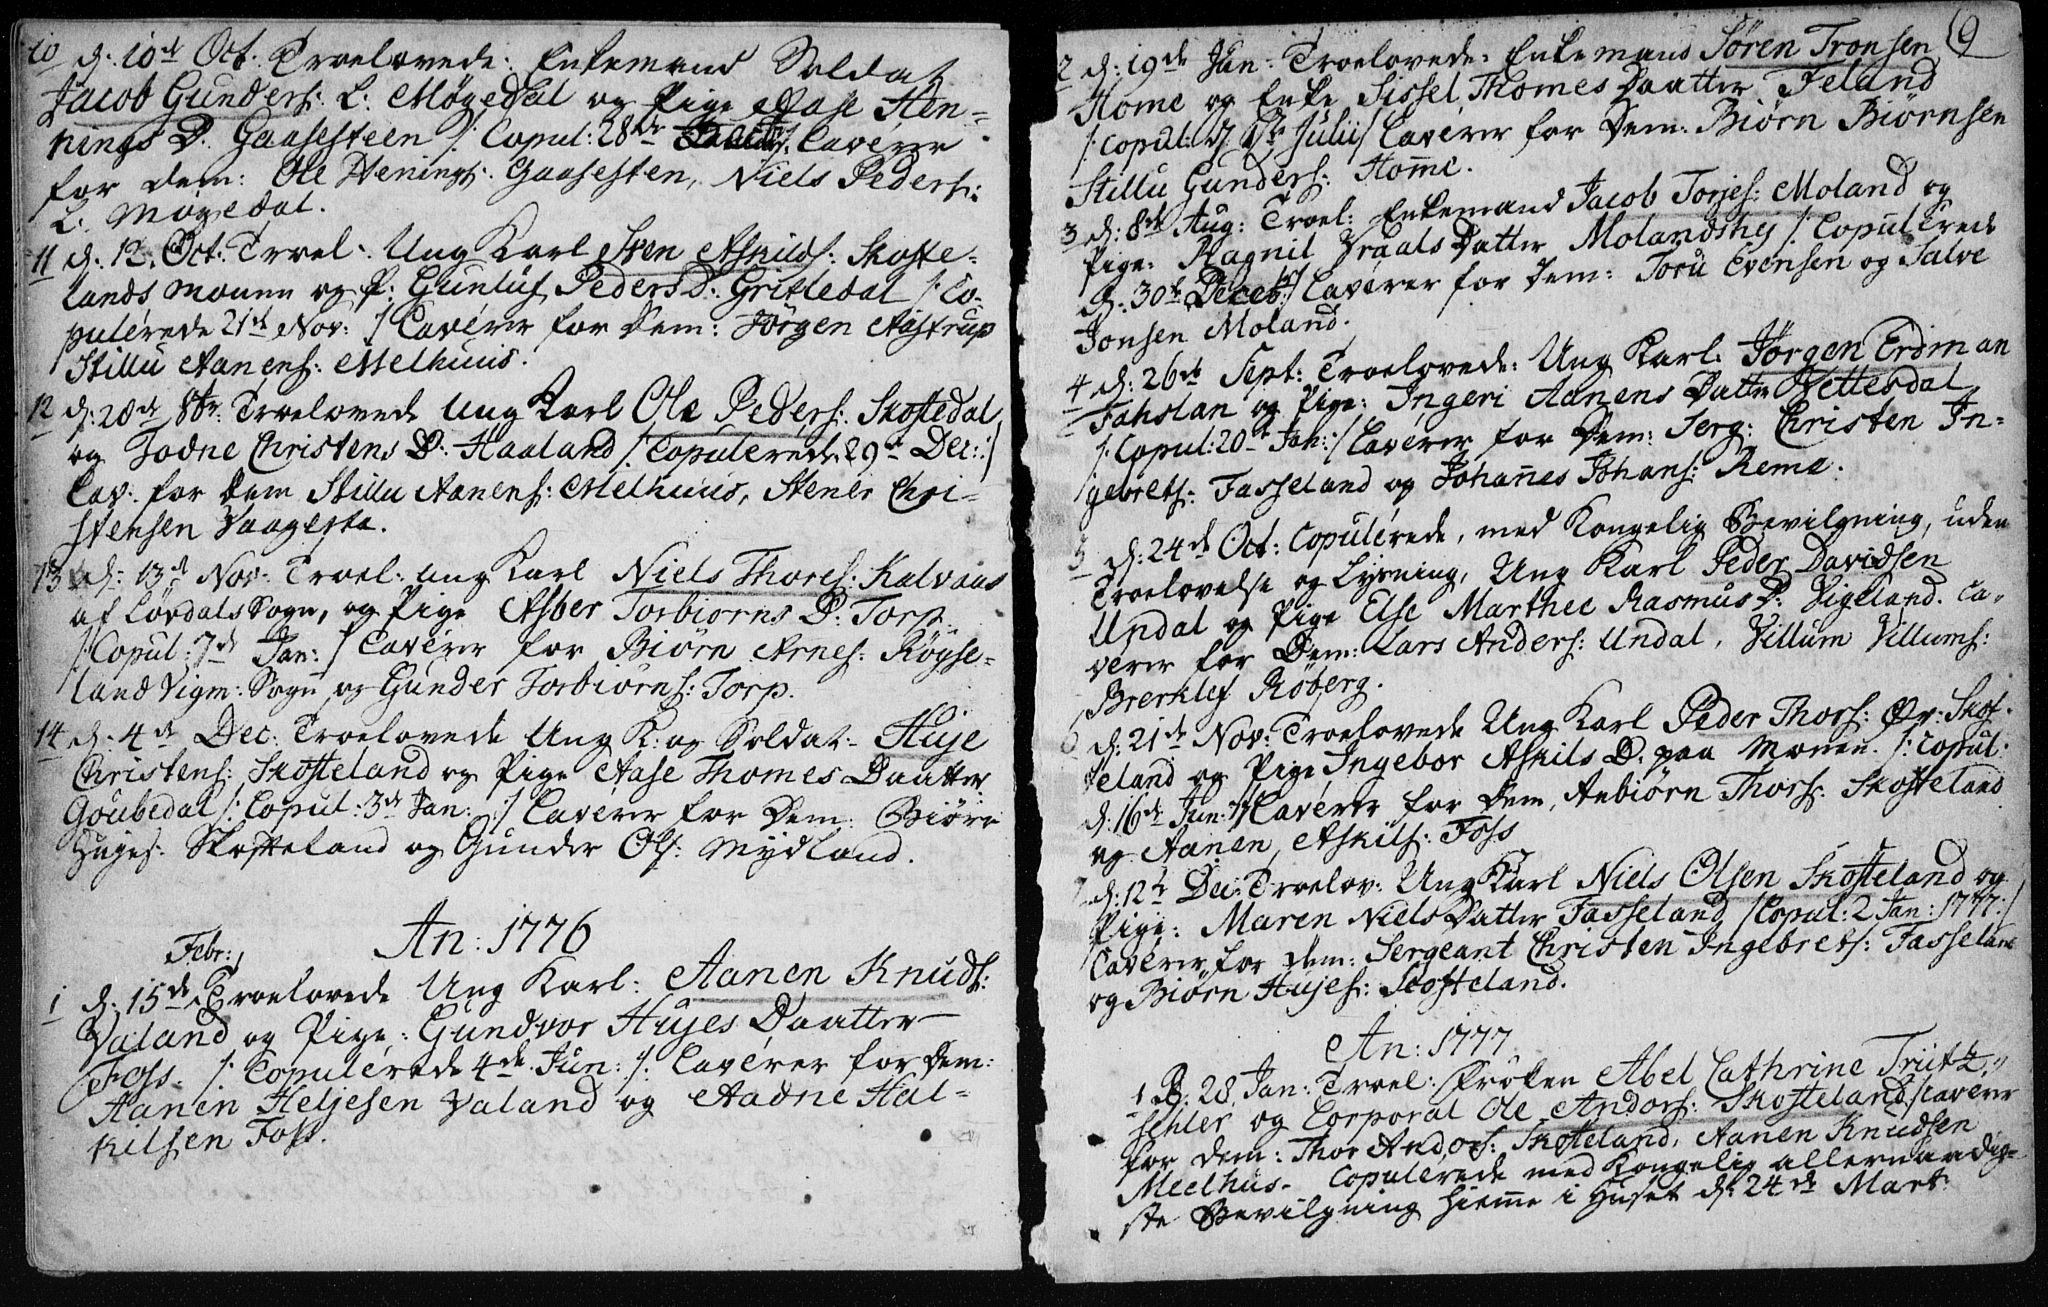 10 d. 10de Oct: Troelovede: Enkemand Soldat
Jacob Gunders: L: Møgedal og Pige Aase Hen-
nings D. Gaasesteen /: Copul: 28de Caverer
for dem: Ole Henings: Gaasesten, Niels Peders:
L. Mogedal.
11 d. 12. Oct. Troel. Ung Karl Sven Askilds: Skofte-
lands Mouen og P: Gunluf Peders D: Gritledal /: Co-
pulerede 21de Nov: / Caverer for dem: Jörgen Aastrup
Stillu Aanens: Melhuus.
12 d: 28de 8br: Troelovede Ung Karl Ole Peders: Skoftedal
og Todne Christens D: Haaland /: Copulerede 29de Dec: /
Cav: for dem Stillu Aanens: Melhuus, Stener Chri-
stensen Vaageste.
13 d: 13de Nov: Troel: ung Karl Niels Thores: Kalvaas
af Lövdals Sogn, og Pige Asber Torbiörns D: Torp
/: Copul: 7de Jan: / Caverer for Biörn Arnes: Röyse-
land Vigm: Sogn og Gunder Torbiörns: Torp.
14 d. 4de Dec: Troelovede Ung K: og Soldat Huje
Christens: Skofteland og Pige Aase Thomes Daatter
Goubedal /: Copul: 3de Jan: :/ Caverer for Dem: Biörn
Hujes: Skofteland og Gunder Ols: Mydland.
An: 1776
Febr:
1 d. 15de Troelovede Ung Karl: Aanen Knuds:
Valand og Pige: Gundvor Hujes Daatter
Foss /: Copulerede 4de Jun: /: Caverer for Dem:
Aanen Heljesen Valand og Aadne Hal-
kilsen Foss.
9
2 d: 19de Jan: Troelovede: Enkemand Sören Tronsen
Home og Enke Sissel Thomes Daatter Feland
/: Copul: Julii / Caverer for Dem: Biörn Biörnsen
Stillu Gunders: Home.
3 d: 8de Aug: Troel: Enkemand Jacob Torjes: Moland og
Pige: Ragnil Vraals Datter Molandshej /: Copulerede
d: 30te Decebr / Caverer for dem: Toru Evensen og Salve
Jonsen Moland.
4 d: 26de Sept: Troelovede: Ung Karl: Jörgen Erdman
Fahslan og Pige: Ingeri Aanens Datter Vettesdal
/: Copul: 20de Jan: / Caverer for Dem: Serg: Christen In-
gebrets: Fasseland og Johannes Johans: Reme.
5 d: 24de Oct: Copulerede, med Kongelig Bevilgning, uden
Troelovelse og Lysning, Ung Karl Peder Davidsen
Undal og Pige Else Marthee Rasmus D: Vigeland. Ca-
verer for Dem: Lars Anders: Undal, Villum Villums:
Brerklef Röberg.
6 d: 21de Nov: Troelovede Ung Karl Peder Thors: Øv: Skof-
teland og Pige Ingebor Askils D. paa Mouen. /: Copul:
d: 16de Jun: / Caverer for Dem, Anbiörn Thors: Skofteland
og Aanen Askils: Foss
7 d: 12te Dec: Troelov: Ung Karl Niels Olsen Skofteland og
Pige: Maren Niels Datter Fasseland /: Copul: 2 Jan: 1777: /
Caverer for dem: Sergeant Christen Ingebrets: Fasseland
og Biörn Hujes: Scofteland.
An: 1777
1 D. 28 Jan: Troel: Fröken Abel Cathrine Trütz-
schler og Corporal Ole Andors: Skofteland / Caverer
for dem: Thor Andors: Skofteland, Aanen Knudsen
Meelhus. Copulerede med Kongelig allernaadig-
ste Bevilgning hieme i Huset d: 24de Mart: